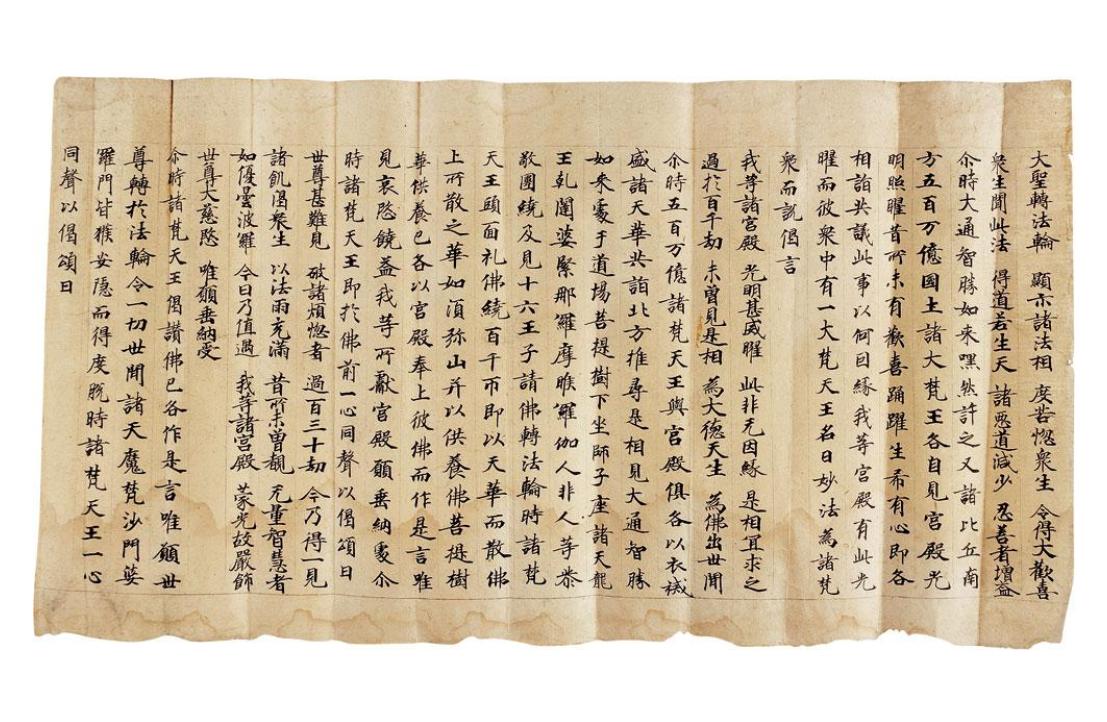 大聖轉法輪 顯示諸法相 度苦惱衆生 令得大歡喜
衆生聞此法 得道若生天 諸惡道減少 忍善者增益
尒時大通智勝如來嘿然許之又諸比丘南
方五百万億國土諸大梵王各自見宮殿光
明照曜昔所未有歡喜踊躍生希有心即各
相詣共議此事以何因緣我等宮殿有此光
曜而彼衆中有一大梵天王名曰妙法為諸梵
衆而説偈言
我等諸宮殿 光明甚威曜 此非无因緣 是相宜求之
過於百千劫 未曾見是相 為大德天生 為佛出世間
尒時五百万億諸梵天王與宮殿俱各以衣祴
盛諸天華共詣北方推尋是相見大通智勝
如來處于道場菩提樹下坐師子座諸天龍
王乹闥婆緊那羅摩睺羅伽人非人等恭
敬圍繞及見十六王子請佛轉法輪時諸梵
天王頭面礼佛繞百千帀即以天華而散佛
上所散之華如須弥山并以供養佛菩提樹
華供養已各以宮殿奉上彼佛而作是言唯
見哀愍饒益我等所獻宮殿願垂納處尒
時諸梵天王即於佛前一心同聲以偈頌曰
世尊甚難見 破諸煩惱者 過百三十劫 今乃得一見
諸飢渴衆生 以法雨充滿 昔所未曾覩 无量智慧者
如優曇波羅 今日乃值遇 我等諸宮殿 蒙光故嚴飾
世尊大慈愍 唯願垂納受
尒時諸梵天王偈讚佛已各作是言唯願世
尊轉於法輪令一切世間諸天魔梵沙門婆
羅門皆獲安隱而得度脫時諸梵天王一心
同聲以偈頌曰